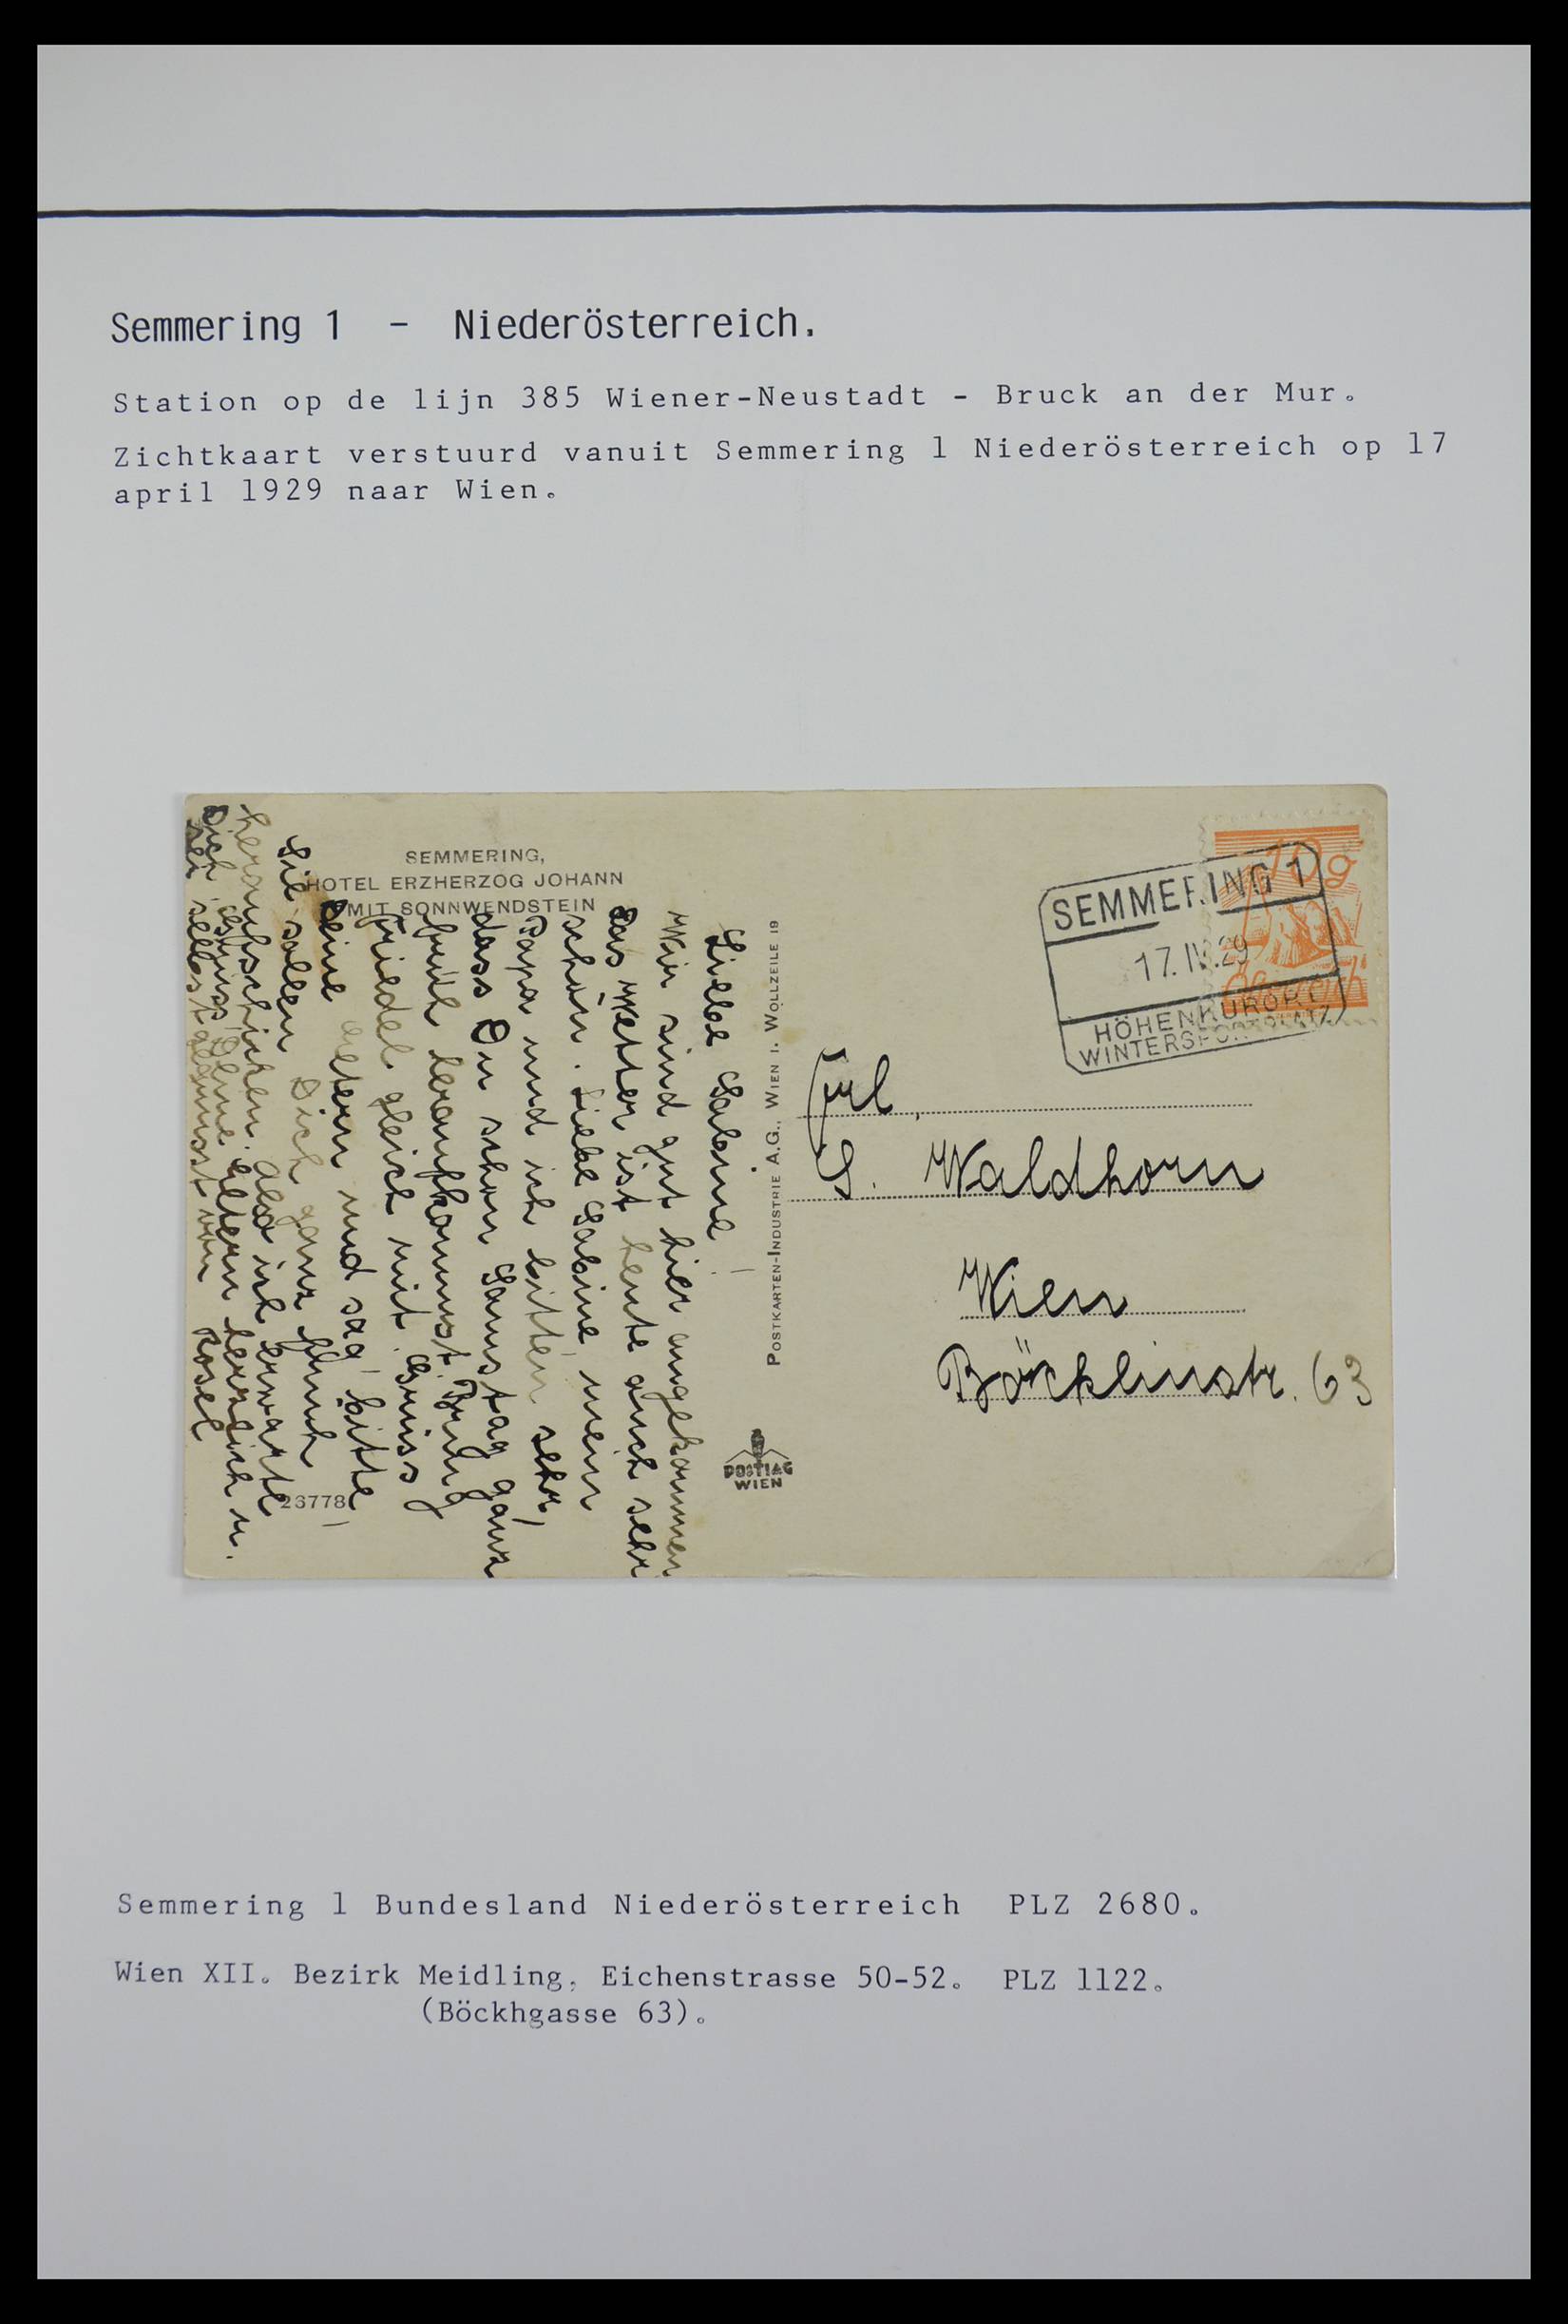 Semmering 1 - Niederösterreich.
Station op de lijn 385 Wiener-Neustadt - Bruck an der Mur.
Zichtkaart verstuurd vanuit Semmering 1 Niederösterreich op 17
april 1929 naar Wien.
SEMMERING,
HOTEL ERZHERZOG JOHANN
MIT SONNWENDSTEIN
Liebe Sabine!
Wir sind gut hier angekommen
Das Wetter ist heute auch sehr
schön. Liebe Sabine mein
Papa und ich bitten sehr,
dass Du schon Samstag ganz
früh heraufkommst. Bring
Friedel gleich mit. Grüss
Deine Eltern und sag, bitte,
Sie sollen Dich ganz früh
heraufschicken. Also ich erwarte
Dich. Grüss Deine Eltern herzlich u.
sei selbst gegrüsst von Rosel
23778
POSTKARTEN-INDUSTRIE A.G., WIEN I. WOLLZEILE 19
POSTIAG
WIEN
10g
Österreich
SEMMERING 1
17.IV.29
HÖHENKURORT
WINTERSPORTPLATZ
Frl.
S. Waldhorn
Wien
Böcklinstr. 63
Semmering 1 Bundesland Niederösterreich PLZ 2680.
Wien XII. Bezirk Meidling, Eichenstrasse 50-52. PLZ 1122.
(Böckhgasse 63).